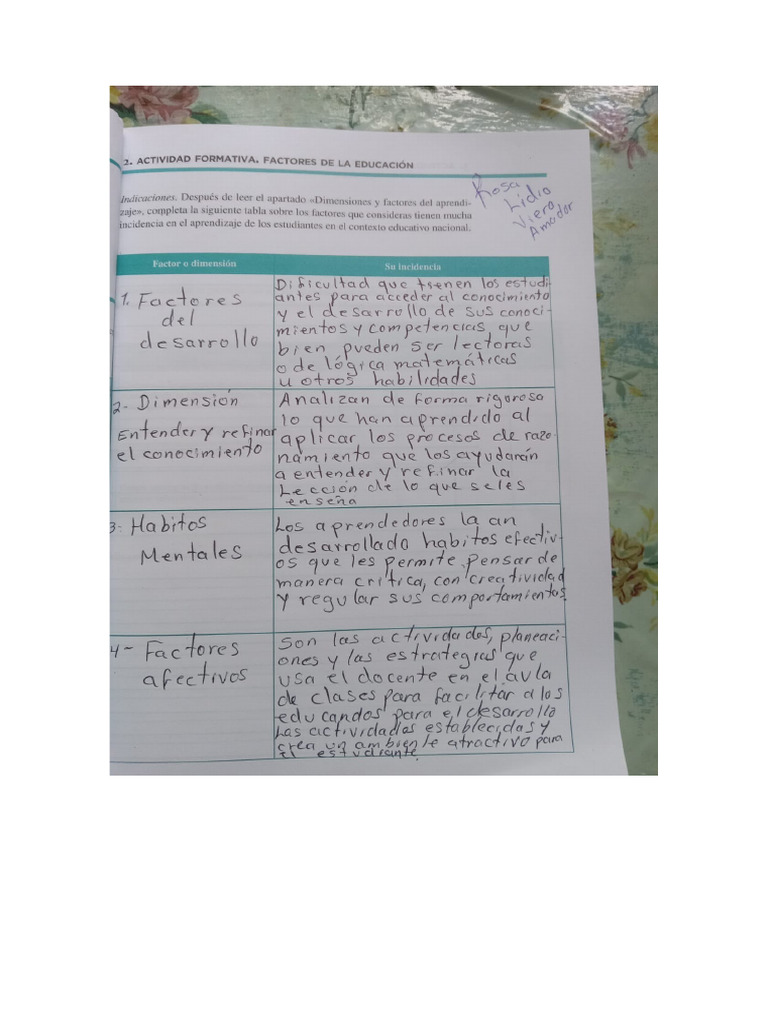 2. ACTIVIDAD FORMATIVA. FACTORES DE LA EDUCACIÓN
Indicaciones. Después de leer el apartado «Dimensiones y factores del aprendi-
zaje», completa la siguiente tabla sobre los factores que consideras tienen mucha
incidencia en el aprendizaje de los estudiantes en el contexto educativo nacional.
Rosa
Lidio
Viero
Amador
Factor o dimensión
Su incidencia
1. Factores
del
desarrollo
Dificultad que tienen los estudi-
antes para acceder al conocimiento
y el desarrollo de sus conoci-
mientos y competencias, que
bien pueden ser lectoras
o de lógica matemáticas
u otros habilidades
2- Dimensión
Entender y refinar
el conocimiento
Analizan de forma rigorosa
lo que han aprendido al
aplicar los procesos de razo-
namiento que los ayudarán
a entender y refinar la
Lección de lo que seles
enseña
3- Habitos
Mentales
Los aprendedores la an
desarrollado habitos efectiv-
os que les permite pensar de
manera crítica, con creatividad
y regular sus comportamientos.
4- Factores
afectivos
Son las actividades, planeaci-
ones y las estrategias que
usa el docente en el aula
de clases para facilitar a los
educandos para el desarrollo
Las actividades establecidas y
crea un ambiente atractivo para
el estudiante.